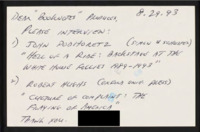 Dear "Booknotes" Producer, 8.29.93
Please interview:
1) John Podhoretz (Simon & Schuster)
"Hell of a Ride: Backstage at the
White House Follies 1989-1993"
2) Robert Hughes (Oxford Univ. Press)
"Culture of Complaint: The
Fraying of America"
Thank you.